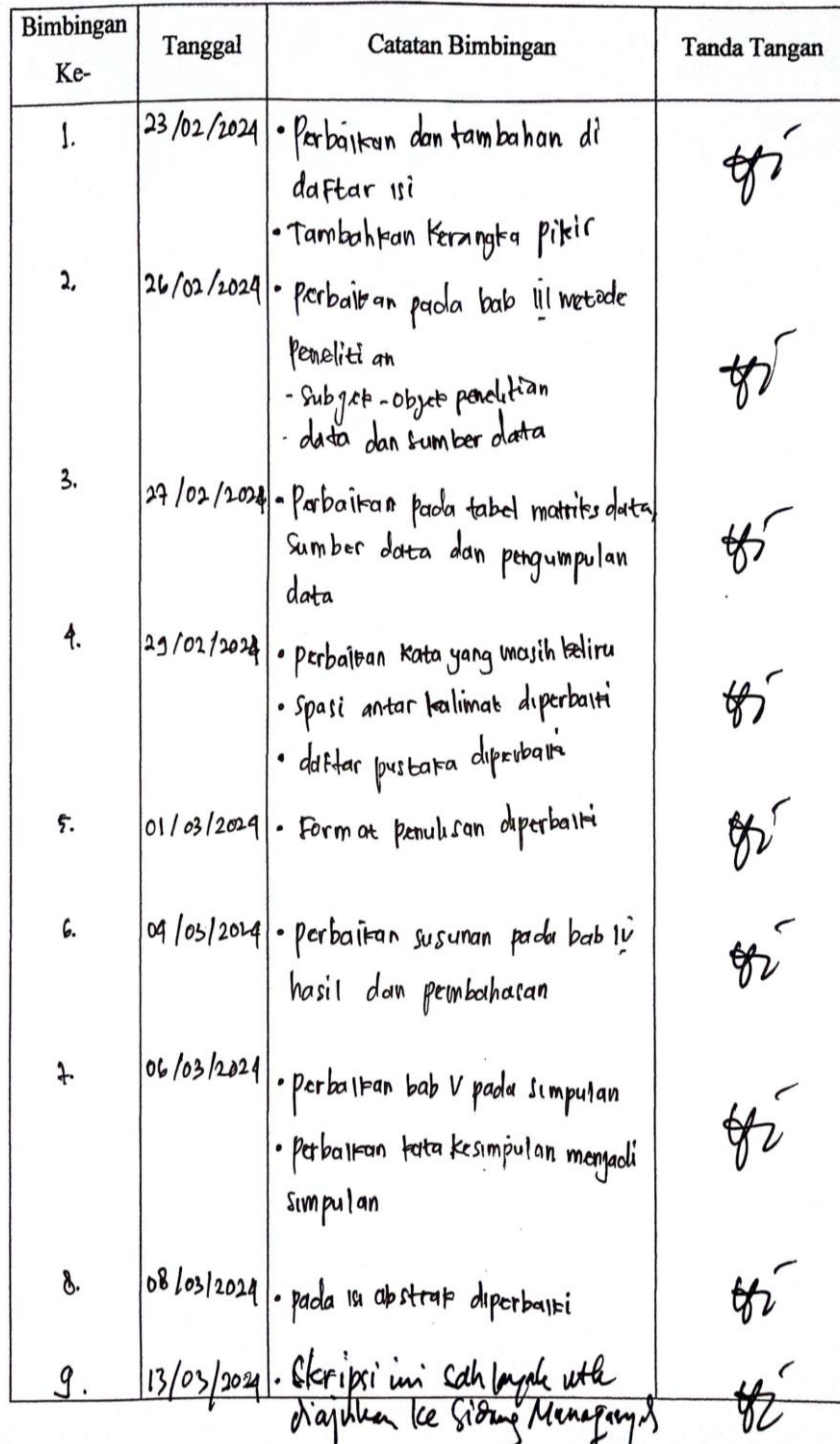 Bimbingan Ke- Tanggal Catatan Bimbingan Tanda Tangan
1. 23/02/2024 • Perbaikan dan tambahan di
daftar isi
• Tambahkan Kerangka pikir
2. 26/02/2024 • Perbaikan pada bab III metode
Penelitian
- Subjek - objek penelitian
- data dan sumber data
3. 27/02/2024 • Perbaikan pada tabel matriks data,
Sumber data dan pengumpulan
data
4. 29/02/2024 • perbaikan kata yang masih keliru
• Spasi antar kalimat diperbaiki
• daftar pustaka diperbaiki
5. 01/03/2024 • Format penulisan diperbaiki
6. 04/03/2024 • perbaikan susunan pada bab IV
hasil dan pembahasan
7. 06/03/2024 • perbaikan bab V pada simpulan
• perbaikan kata kesimpulan menjadi
simpulan
8. 08/03/2024 • pada isi abstrak diperbaiki
9. 13/03/2024 • Skripsi ini sdh layak utk
diajukan ke Sidang